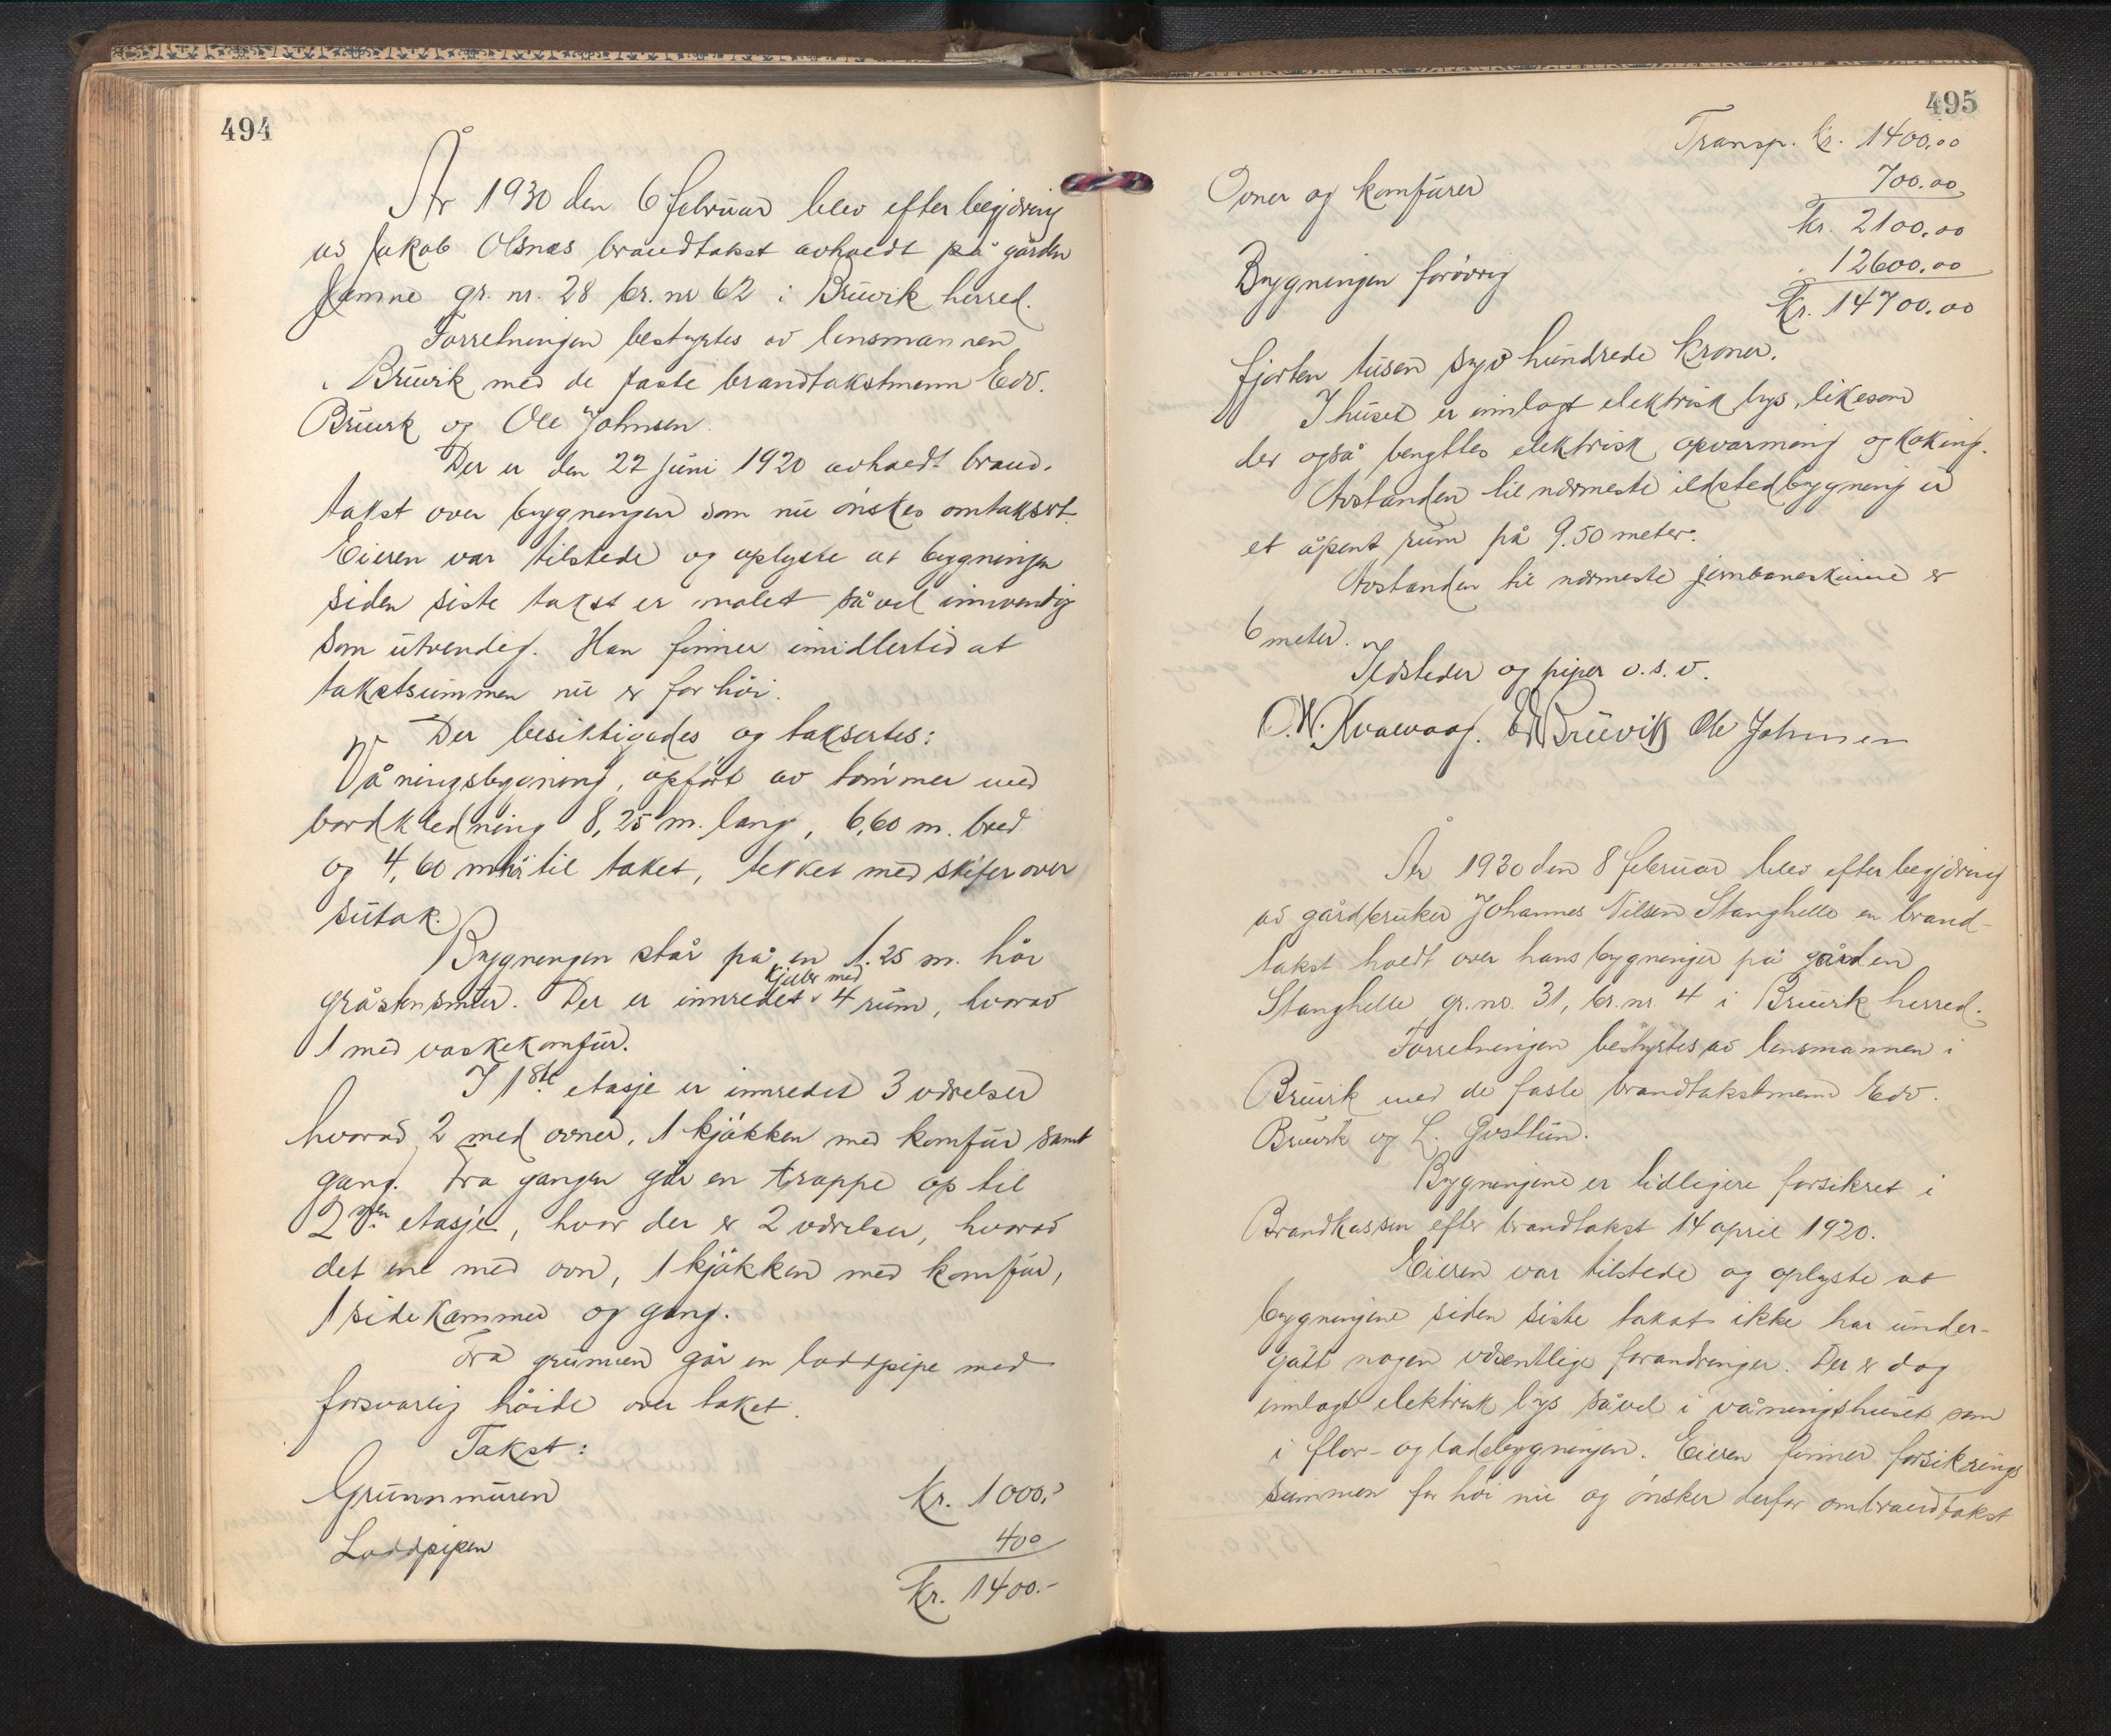 494
År 1930 den 6 februar blev efter begjæring
av Jakob Olsnes brandtakst avholdt på gården
Jamne gr. nr. 28 br. nr 62 i Bruvik herred.
Forretningen bestyrtes av lensmannen
i Bruvik med de faste brandtakstmenn Edv.
Bruvik og Ole Johnsen.
Der er den 22 juni 1920 avholdt brand-
takst over bygningen som nu ønskes omtaksert.
Eieren var tilstede og oplyste at bygningen
siden siste takst er malet såvel innvendig
som utvendig. Han finner imidlertid at
takstsummen nu er for høi.
Der besiktigedes og taksertes:
Våningsbygning, opført av tømmer med
bordkledning 8,25 m. lang, 6,60 m. bred
og 4,60 m høi til taket, tekket med skifer over
sutak.
Bygningen står på en 1.25 m. høi
gråstensmur. Der er innredet kjeller med 4 rum, hvorav
1 med vaskekomfur.
I 1ste etasje er innredet 3 værelser
hvorav 2 med ovner, 1 kjøkken med komfur samt
gang. Fra gangen går en trappe op til
2nen etasje, hvor der er 2 værelser, hvorav
det ene med ovn, 1 kjøkken med komfur,
1 sidekammer og gang.
Fra grunnen går en loddpipe med
forsvarlig høide over taket.
Takst:
Grunnmuren Kr. 1000.-
Loddpipen 400
Kr. 1400.-
495
Transp. kr. 1400.00
Ovner og komfurer 700.00
kr. 2100.00
Bygningen forøvrig 12600.00
Kr. 14700.00
fjorten tusen syv hundrede kroner.
I huset er innlagt elektrisk lys, likesom
der også benyttes elektrisk opvarming og koking.
Avstanden til nærmeste ildstedbygning er
et åpent rum på 9.50 meter.
Avstanden til nærmeste jernbaneskinne er
6 meter.
Ildsteder og piper o.s.v.
O.W. Kvalvaag. Edv Bruvik Ole Johnsen
År 1930 den 8 februar blev efter begjæring
av gårdbruker Johannes Nilsen Stanghelle en brand-
takst holdt over hans bygninger på gården
Stanghelle gr. nr. 31, br. nr. 4 i Bruvik herred.
Forretningen bestyrtes av lensmannen i
Bruvik med de faste brandtakstmenn Edv.
Bruvik og L.
Bygningene er tidligere forsikret i
Brandkassen efter brandtakst 14 april 1920.
Eieren var tilstede og oplyste at
bygningene siden siste takst ikke har under-
gått nogen vesentlige forandringer. Der er dog
innlagt elektrisk lys såvel i våningshuset som
i flor- og ladebygningen. Eieren finner forsikrings
summen for høi nu og ønsker derfor ombrandtakst